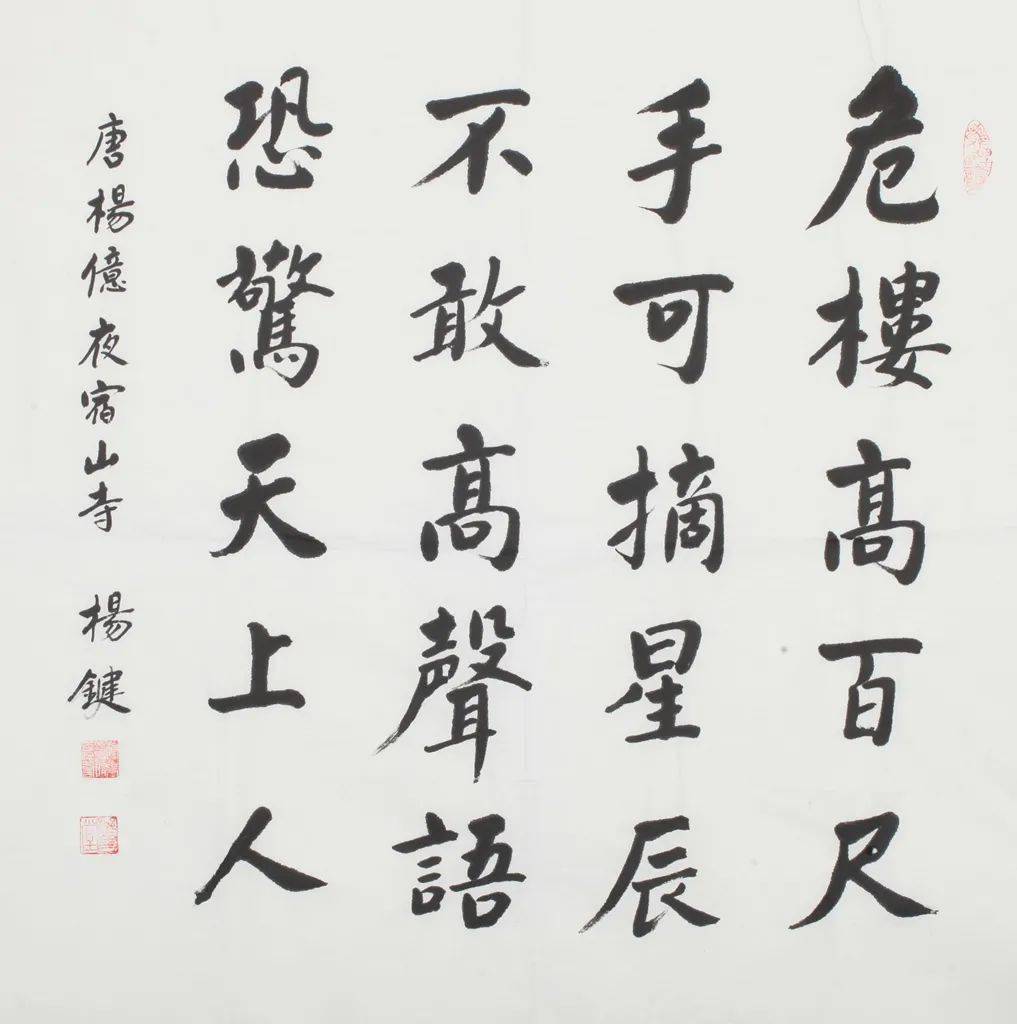 危樓髙百尺
手可摘星辰
不敢髙聲語
恐驚天上人
唐楊億夜宿山寺 楊鍵